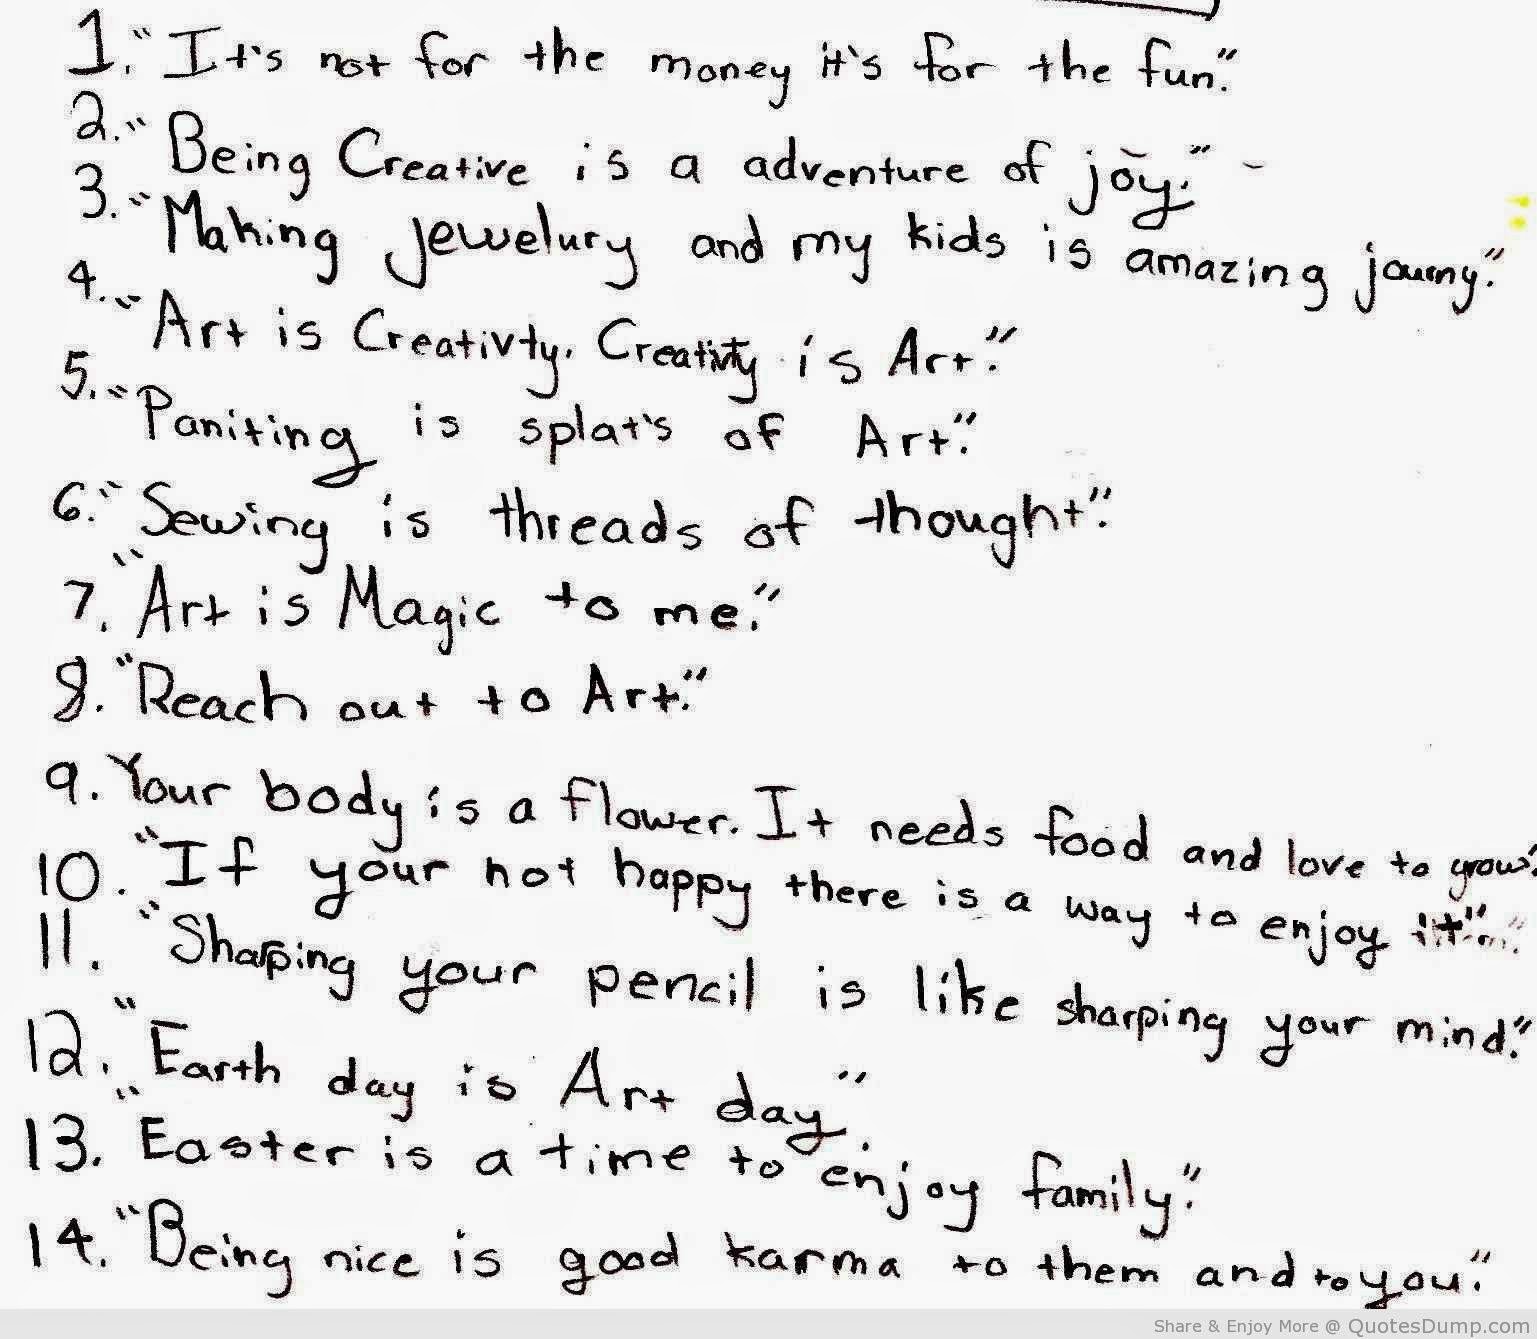 1. "It's not for the money it's for the fun."
2. "Being Creative is a adventure of joy."
3. "Making jewelury and my kids is amazing journy."
4. "Art is Creativty. Creativity is Art."
5. "Paniting is splat's of Art."
6. "Sewing is threads of thought."
7. "Art is Magic to me."
8. "Reach out to Art."
9. Your body is a flower. It needs food and love to grow.
10. "If your not happy there is a way to enjoy it"
11. "Sharping your pencil is like sharping your mind."
12. "Earth day is Art day".
13. "Easter is a time to enjoy family."
14. "Being nice is good karma to them and to you."
Share & Enjoy More @ QuotesDump.com